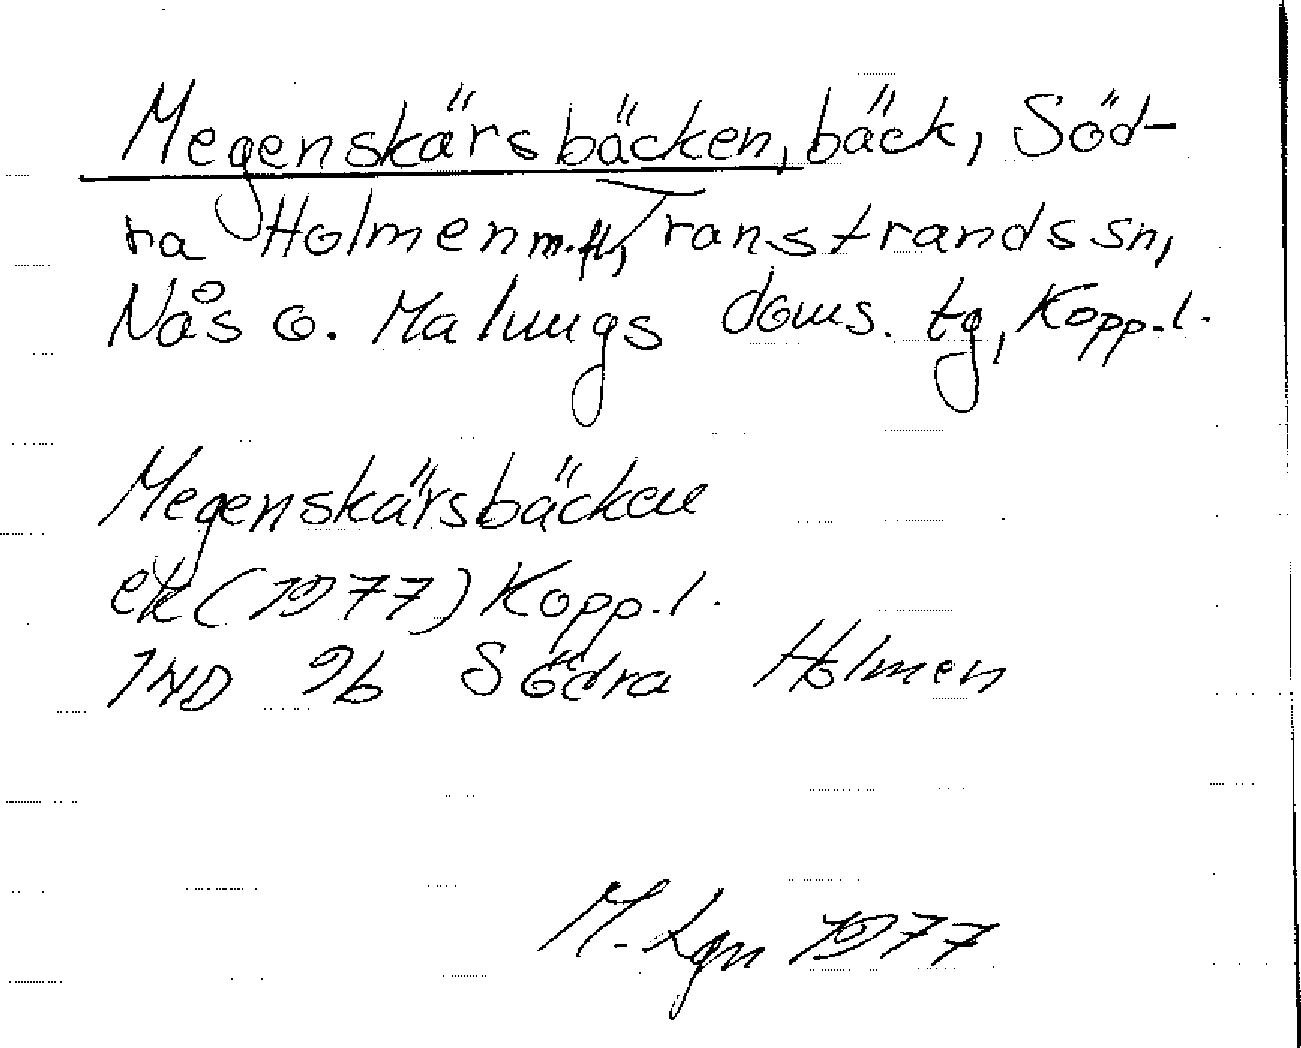 Megenskärsbäcken, bäck, Söd-
ra Holmen m.fl., Transtrands sn,
Nås o. Malungs doms. tg, Kopp.l.
Megenskärsbäcken
ek (1977) Kopp.l.
IND 9b Södra Holmen
M. Lgn 1977